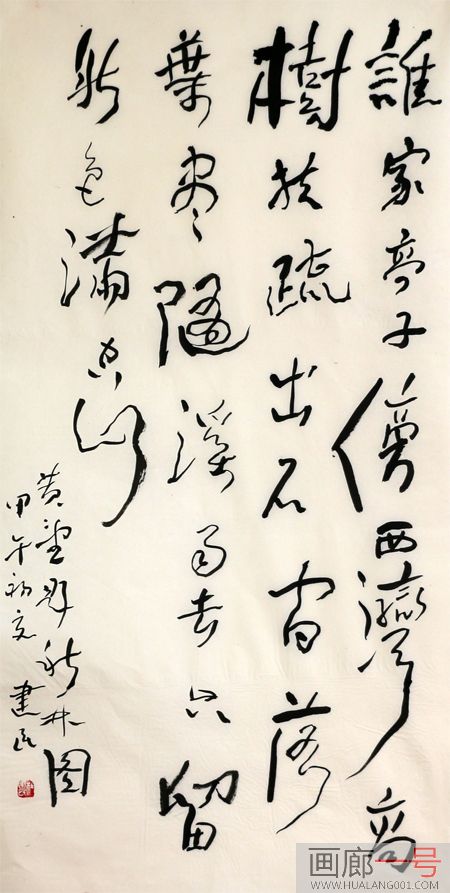 誰家亭子傍西灣高
樹扶疏出石間落
葉盡隨溪雨去只留
秋色滿空山
黄公望題秋林圖
甲午初夏 建民
画廊一号
WWW.HUALANG001.COM